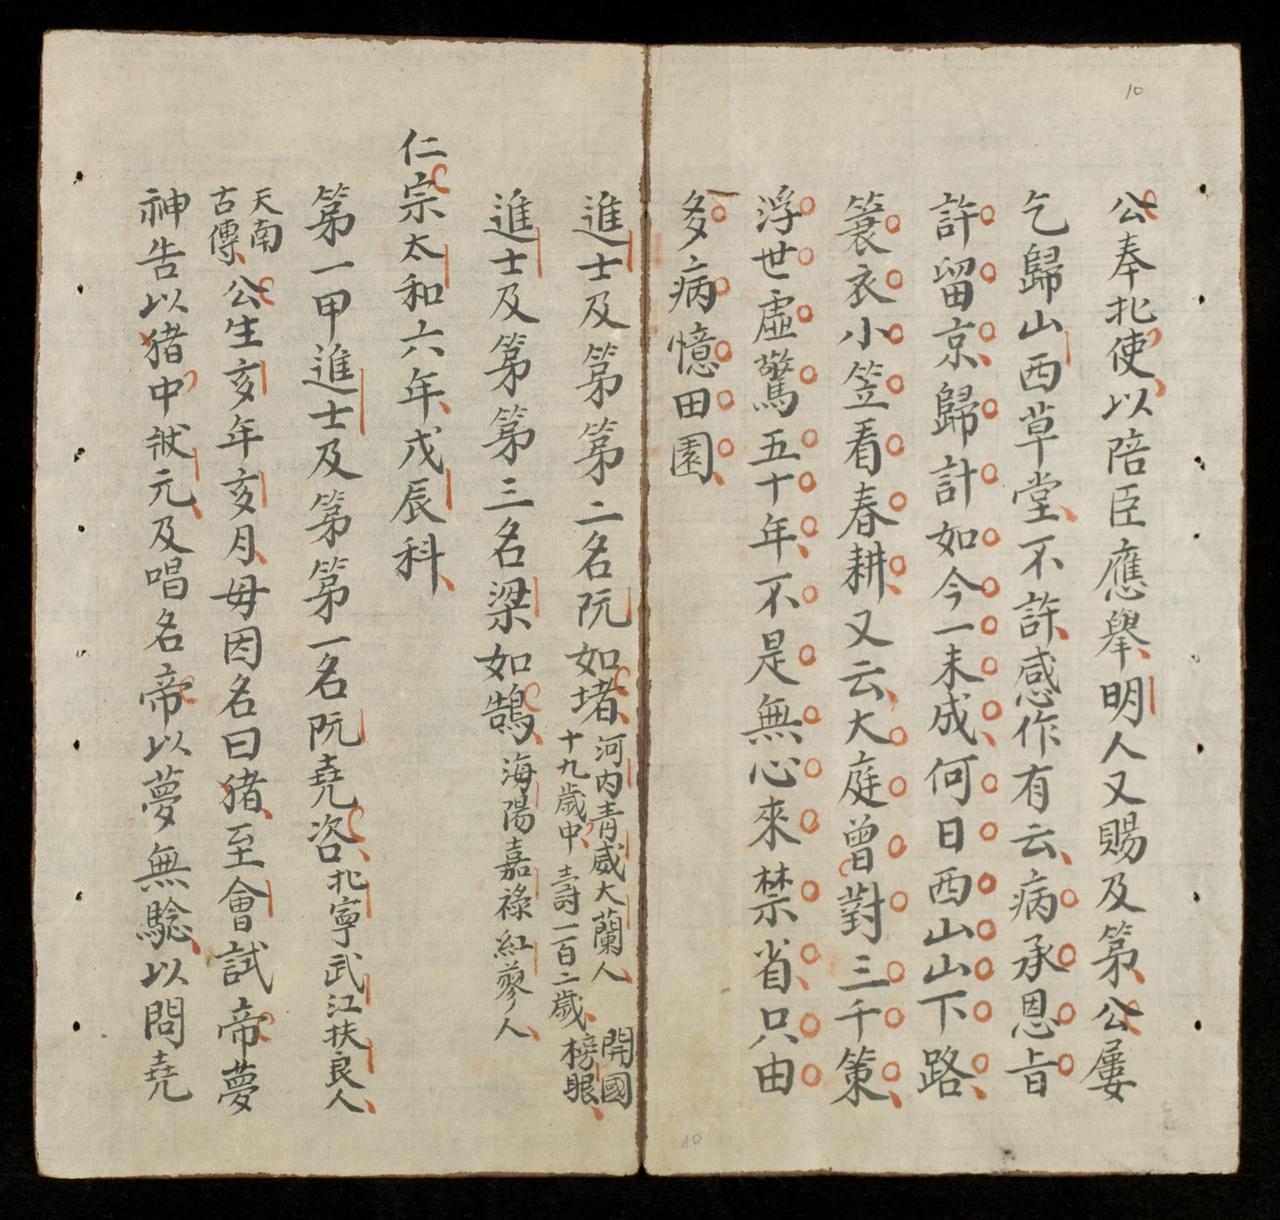 10
公奉北使以陪臣應舉明人又賜及第公屢
乞歸山西草堂不許感作有云病承恩旨
許留京歸計如今一未成何日西山山下路
簑衣小笠看春耕又云大庭曾對三千策
浮世虛驚五十年不是無心來禁省只由
多病憶田園
進士及第第二名阮如堵河內青威大蘭人
十九歲中壽一百二歲
開國
榜眼
進士及第第三名梁如鵠海陽嘉祿紅蓼人
仁宗太和六年戊辰科
第一甲進士及第第一名阮堯咨北寧武江扶良人
天南
古傳
公生亥年亥月毋因名曰猪至會試帝夢
神告以猪中狀元及唱名帝以夢無騐以問堯
10